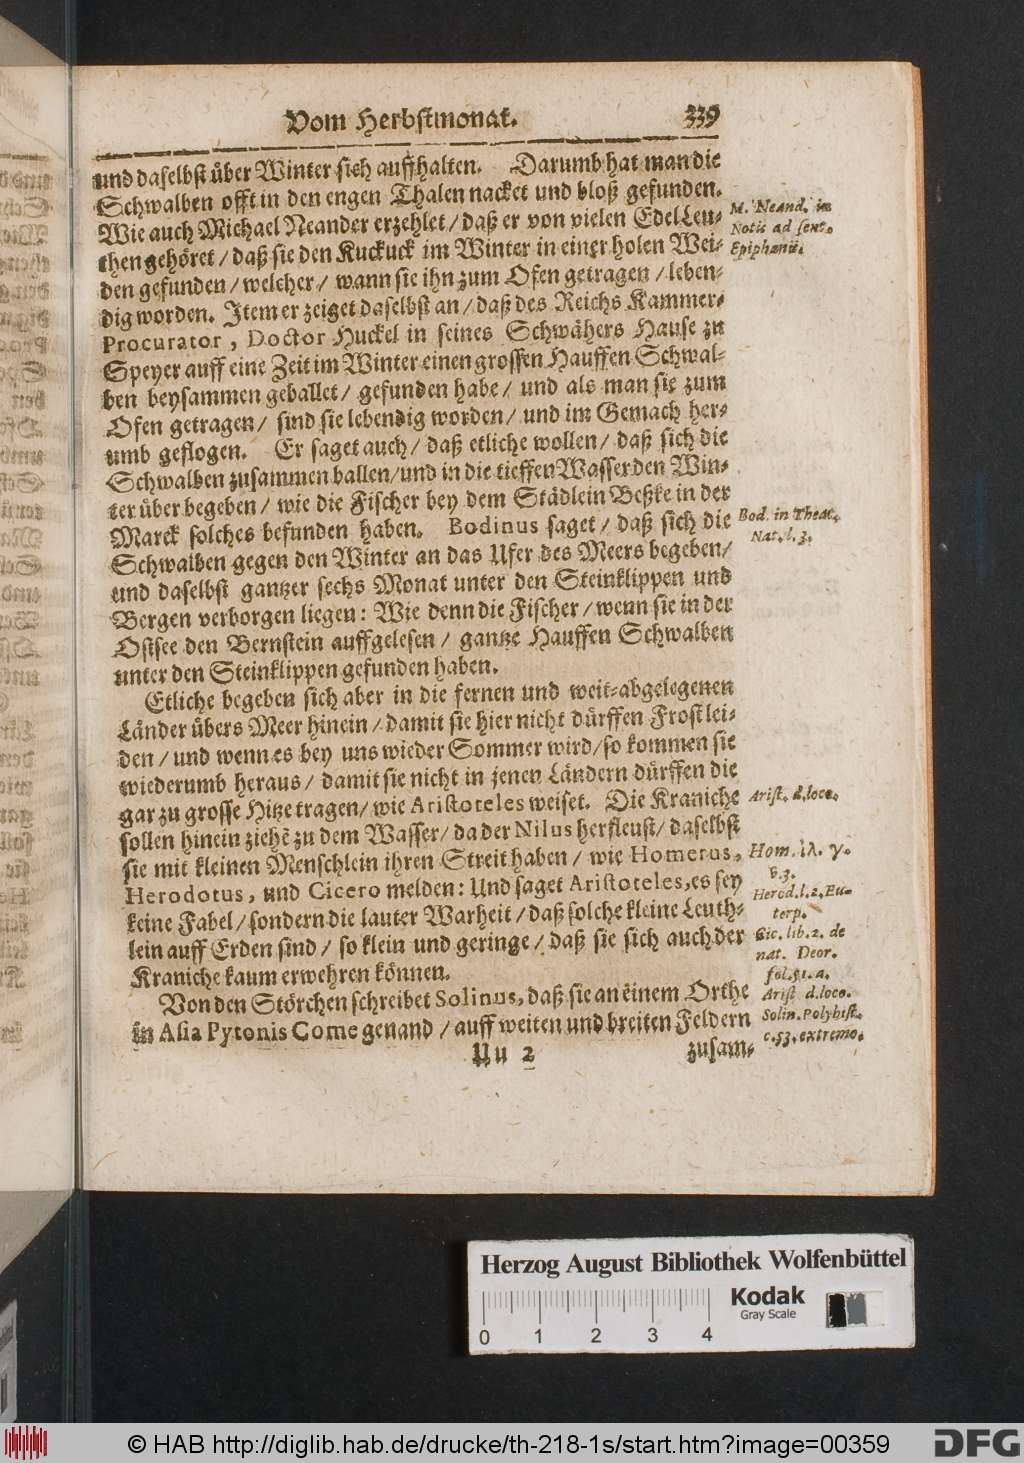 Vom Herbstmonat. 339
und daselbst über Winter sich auffhalten. Darumb hat man die
Schwalben offt in den engen Thalen nacket und bloß gefunden.
Wie auch Michael Neander erzehlet/ daß er von vielen EdelLeu-
then gehöret/ daß sie den Kuckuck im Winter in einer holen Wei-
den gefunden/ welcher/ wann sie ihn zum Ofen getragen/ leben-
dig worden. Item er zeiget daselbst an/ daß des Reichs Kammer-
Procurator, Doctor Huckel in seines Schwähers Hause zu
Speyer auff eine Zeit im Winter einen grossen Hauffen Schwal-
ben beysammen geballet/ gefunden habe/ und als man sie zum
Ofen getragen/ sind sie lebendig worden/ und im Gemach her-
umb geflogen. Er saget auch/ daß etliche wollen/ daß sich die
Schwalben zusammen ballen/ und in die tieffen Wasser den Win-
ter über begeben/ wie die Fischer bey dem Städlein Beßke in der
Marck solches befunden haben. Bodinus saget/ daß sich die
Schwalben gegen den Winter an das Ufer des Meers begeben/
und daselbst gantzer sechs Monat unter den Steinklippen und
Bergen verborgen liegen: Wie denn die Fischer/ wenn sie in der
Ostsee den Bernstein auffgelesen/ gantze Hauffen Schwalben
unter den Steinklippen gefunden haben.
Etliche begeben sich aber in die fernen und weit-abgelegenen
Länder übers Meer hinein/ damit sie hier nicht dürffen Frost lei-
den/ und wenn es bey uns wieder Sommer wird/ so kommen sie
wiederumb heraus/ damit sie nicht in jenen Ländern dürffen die
gar zu grosse Hitze tragen/ wie Aristoteles weiset. Die Kraniche
sollen hinein ziehẽ zu dem Wasser/ da der Nilus herfleust/ daselbst
sie mit kleinen Menschlein ihren Streit haben/ wie Homerus,
Herodotus, und Cicero melden: Und saget Aristoteles, es sey
keine Fabel/ sondern die lauter Warheit/ daß solche kleine Leuth-
lein auff Erden sind/ so klein und geringe/ daß sie sich auch der
Kraniche kaum erwehren können.
Von den Störchen schreibet Solinus, daß sie an einem Orthe
in Asia Pytonis Come genand/ auff weiten und breiten Feldern
Uu 2 zusam-
M. Neand. in
Notis ad sent.
Epiphanii.
Bod. in Theat.
Nat. l. 3.
Arist. d. loco.
Hom. ἰλ. γ.
v. 3.
Herod. l. 2. Eu-
terp.
Cic. lib. 2. de
nat. Deor.
fol. 51. a.
Arist d. loco.
Solin. Polyhist.
c. 53. extremo.
Herzog August Bibliothek Wolfenbüttel
Kodak
Gray Scale
0 1 2 3 4
© HAB http://diglib.hab.de/drucke/th-218-1s/start.htm?image=00359
DFG